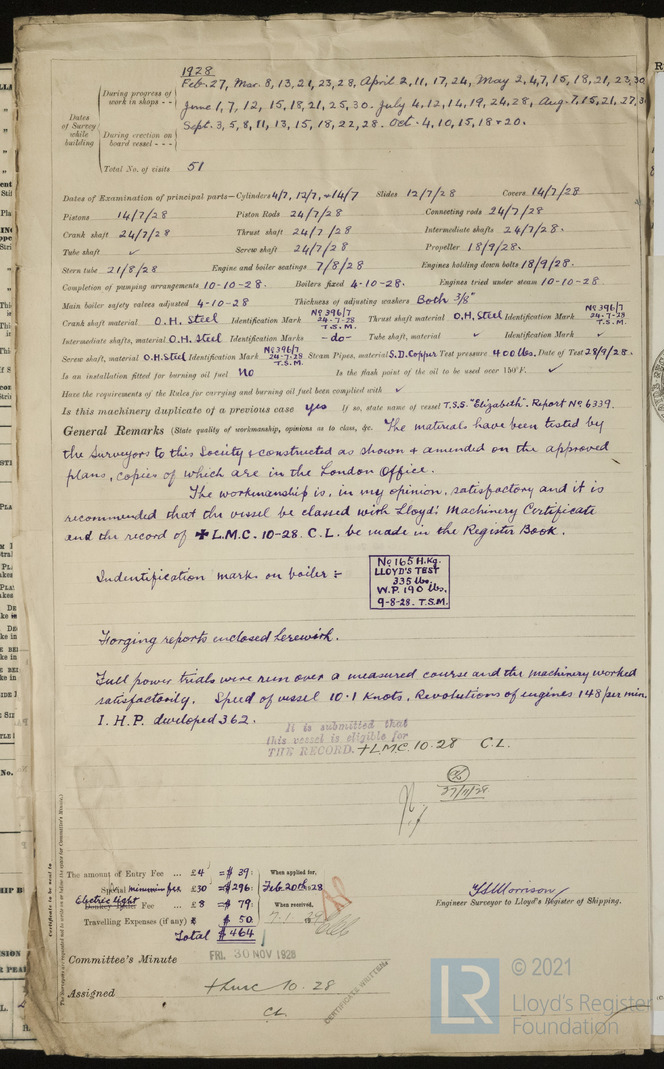 1928
During progress of work in shops - - Feb. 27, Mar. 8, 13, 21, 23, 28, April 2, 11, 17, 24, May 2, 4, 7, 15, 18, 21, 23, 30
June 1, 7, 12, 15, 18, 21, 25, 30. July 4, 12, 14, 19, 24, 28, Aug. 7, 15, 21, 27, 3
Dates of Survey while building
During erection on board vessel - - - Sept. 3, 5, 8, 11, 13, 15, 18, 22, 28. Oct. 4, 10, 15, 18 + 20.
Total No. of visits 51
Dates of Examination of principal parts—Cylinders 4/7, 12/7, + 14/7 Slides 12/7/28 Covers 14/7/28
Pistons 14/7/28 Piston Rods 24/7/28 Connecting rods 24/7/28
Crank shaft 24/7/28 Thrust shaft 24/7/28 Intermediate shafts 24/7/28.
Tube shaft ✓ Screw shaft 24/7/28 Propeller 18/9/28.
Stern tube 21/8/28 Engine and boiler seatings 7/8/28 Engines holding down bolts 18/9/28.
Completion of pumping arrangements 10-10-28. Boilers fixed 4-10-28. Engines tried under steam 10-10-28
Main boiler safety valves adjusted 4-10-28 Thickness of adjusting washers Both 3/8"
Crank shaft material O.H. Steel Identification Mark No 396/7 24-7-28 T.S.M. Thrust shaft material O.H. Steel Identification Mark No 396/7 24-7-28 T.S.M.
Intermediate shafts, material O.H. Steel Identification Marks - do - Tube shaft, material ✓ Identification Mark ✓
Screw shaft, material O.H. Steel Identification Mark No 396/7 24-7-28 T.S.M. Steam Pipes, material S.D. Copper Test pressure 400 lbs. Date of Test 28/9/28.
Is an installation fitted for burning oil fuel No Is the flash point of the oil to be used over 150°F. ✓
Have the requirements of the Rules for carrying and burning oil fuel been complied with ✓
Is this machinery duplicate of a previous case yes If so, state name of vessel T.S.S. "Elizabeth". Report No 6339.
General Remarks (State quality of workmanship, opinions as to class, &c. The material have been tested by
the Surveyors to this Society & constructed as shown + amended on the approved
plans, copies of which are in the London Office.
The workmanship is, in my opinion, satisfactory and it is
recommended that the vessel be classed with Lloyd's Machinery Certificate
and the record of ✠ L.M.C. 10-28. C.L. be made in the Register Book.
Indentification marks on boiler :-
No 165 H.Kg.
LLOYD'S TEST
335 lbs.
W.P. 190 lbs.
9-8-28. T.S.M.
Forging reports enclosed herewith.
Full power trials were run over a measured course and the machinery worked
satisfactorily. Speed of vessel 10.1 Knots. Revolutions of engines 148 per min.
I.H.P. developed 362.
It is submitted that
this vessel is eligible for
THE RECORD. + L.M.C. 10.28 C.L.
The amount of Entry Fee ... £ 4 = $ 39: When applied for,
Special minimum fee £ 30 = $ 296: Feb. 20th 28
Electric light Donkey Boiler Fee ... £ 8 = $ 79: When received,
Travelling Expenses (if any) £ $ 50 7.1.29
Total $ 464
T.S. Morrison
Engineer Surveyor to Lloyd's Register of Shipping.
Committee's Minute FRI. 30 NOV 1928
Assigned + Lmc 10.28
CL
CERTIFICATE WRITTEN.
Certificate to be sent to
LR © 2021
Lloyd's Register
Foundation